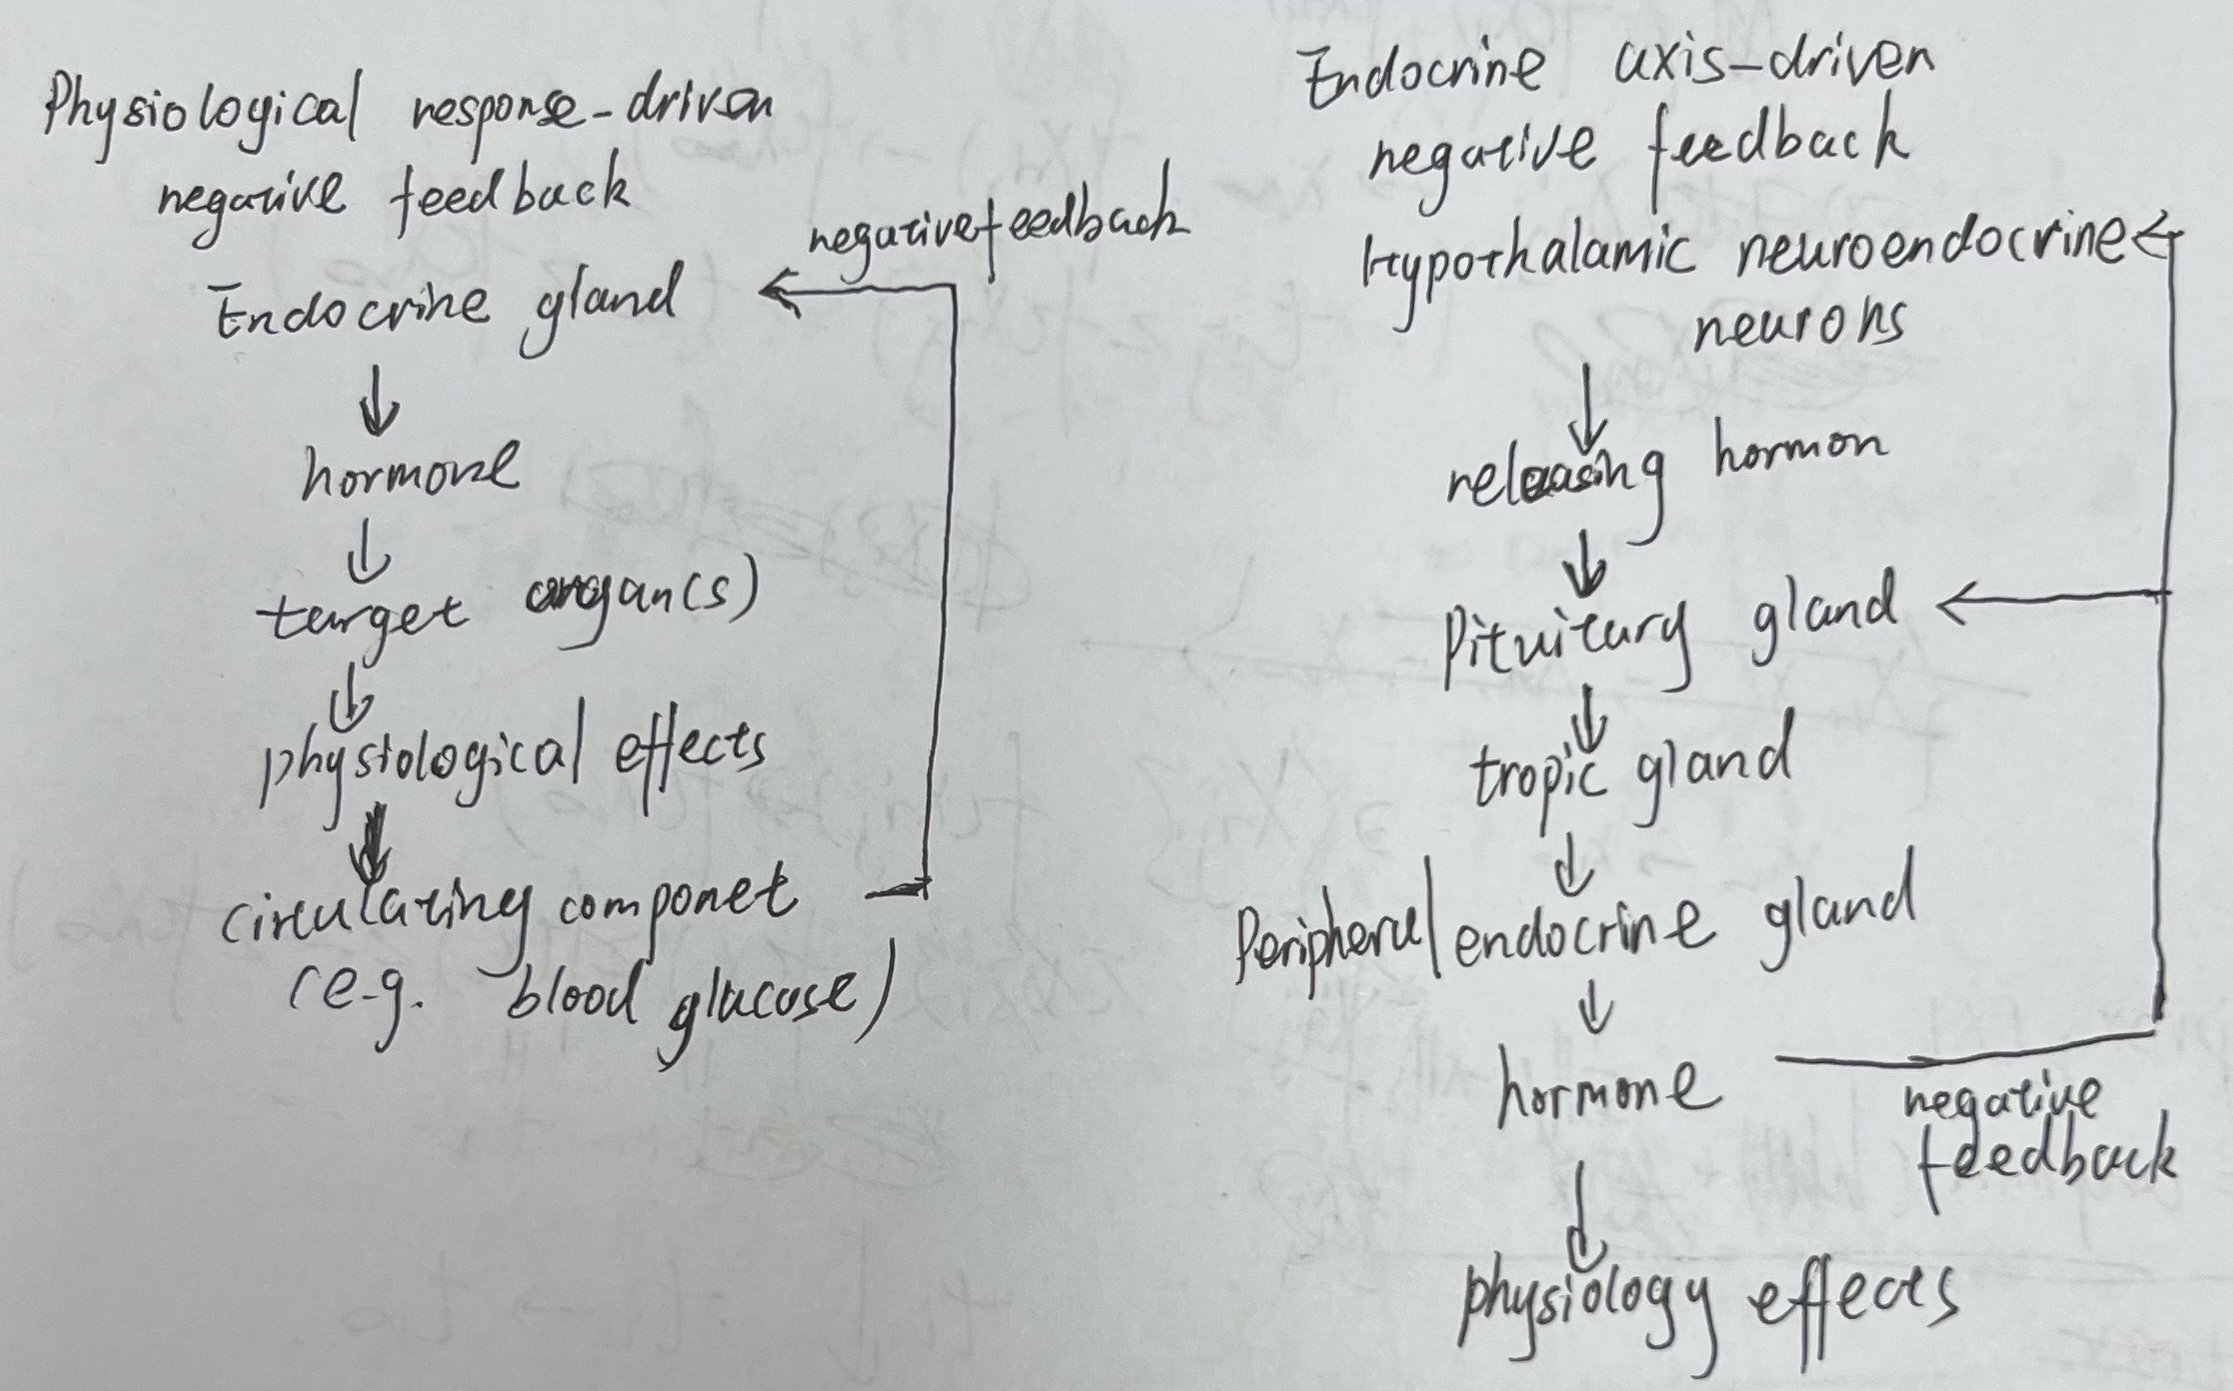 Physiological response-driven
negative feedback
negative feedback
Endocrine gland
hormone
target organ(s)
physiological effects
circulating componet
(e.g. blood glucose)
Endocrine axis-driven
negative feedback
Hypothalamic neuroendocrine
neurons
releasing hormon
Pituitary gland
tropic gland
Peripheral endocrine gland
hormone
negative
feedback
physiology effects